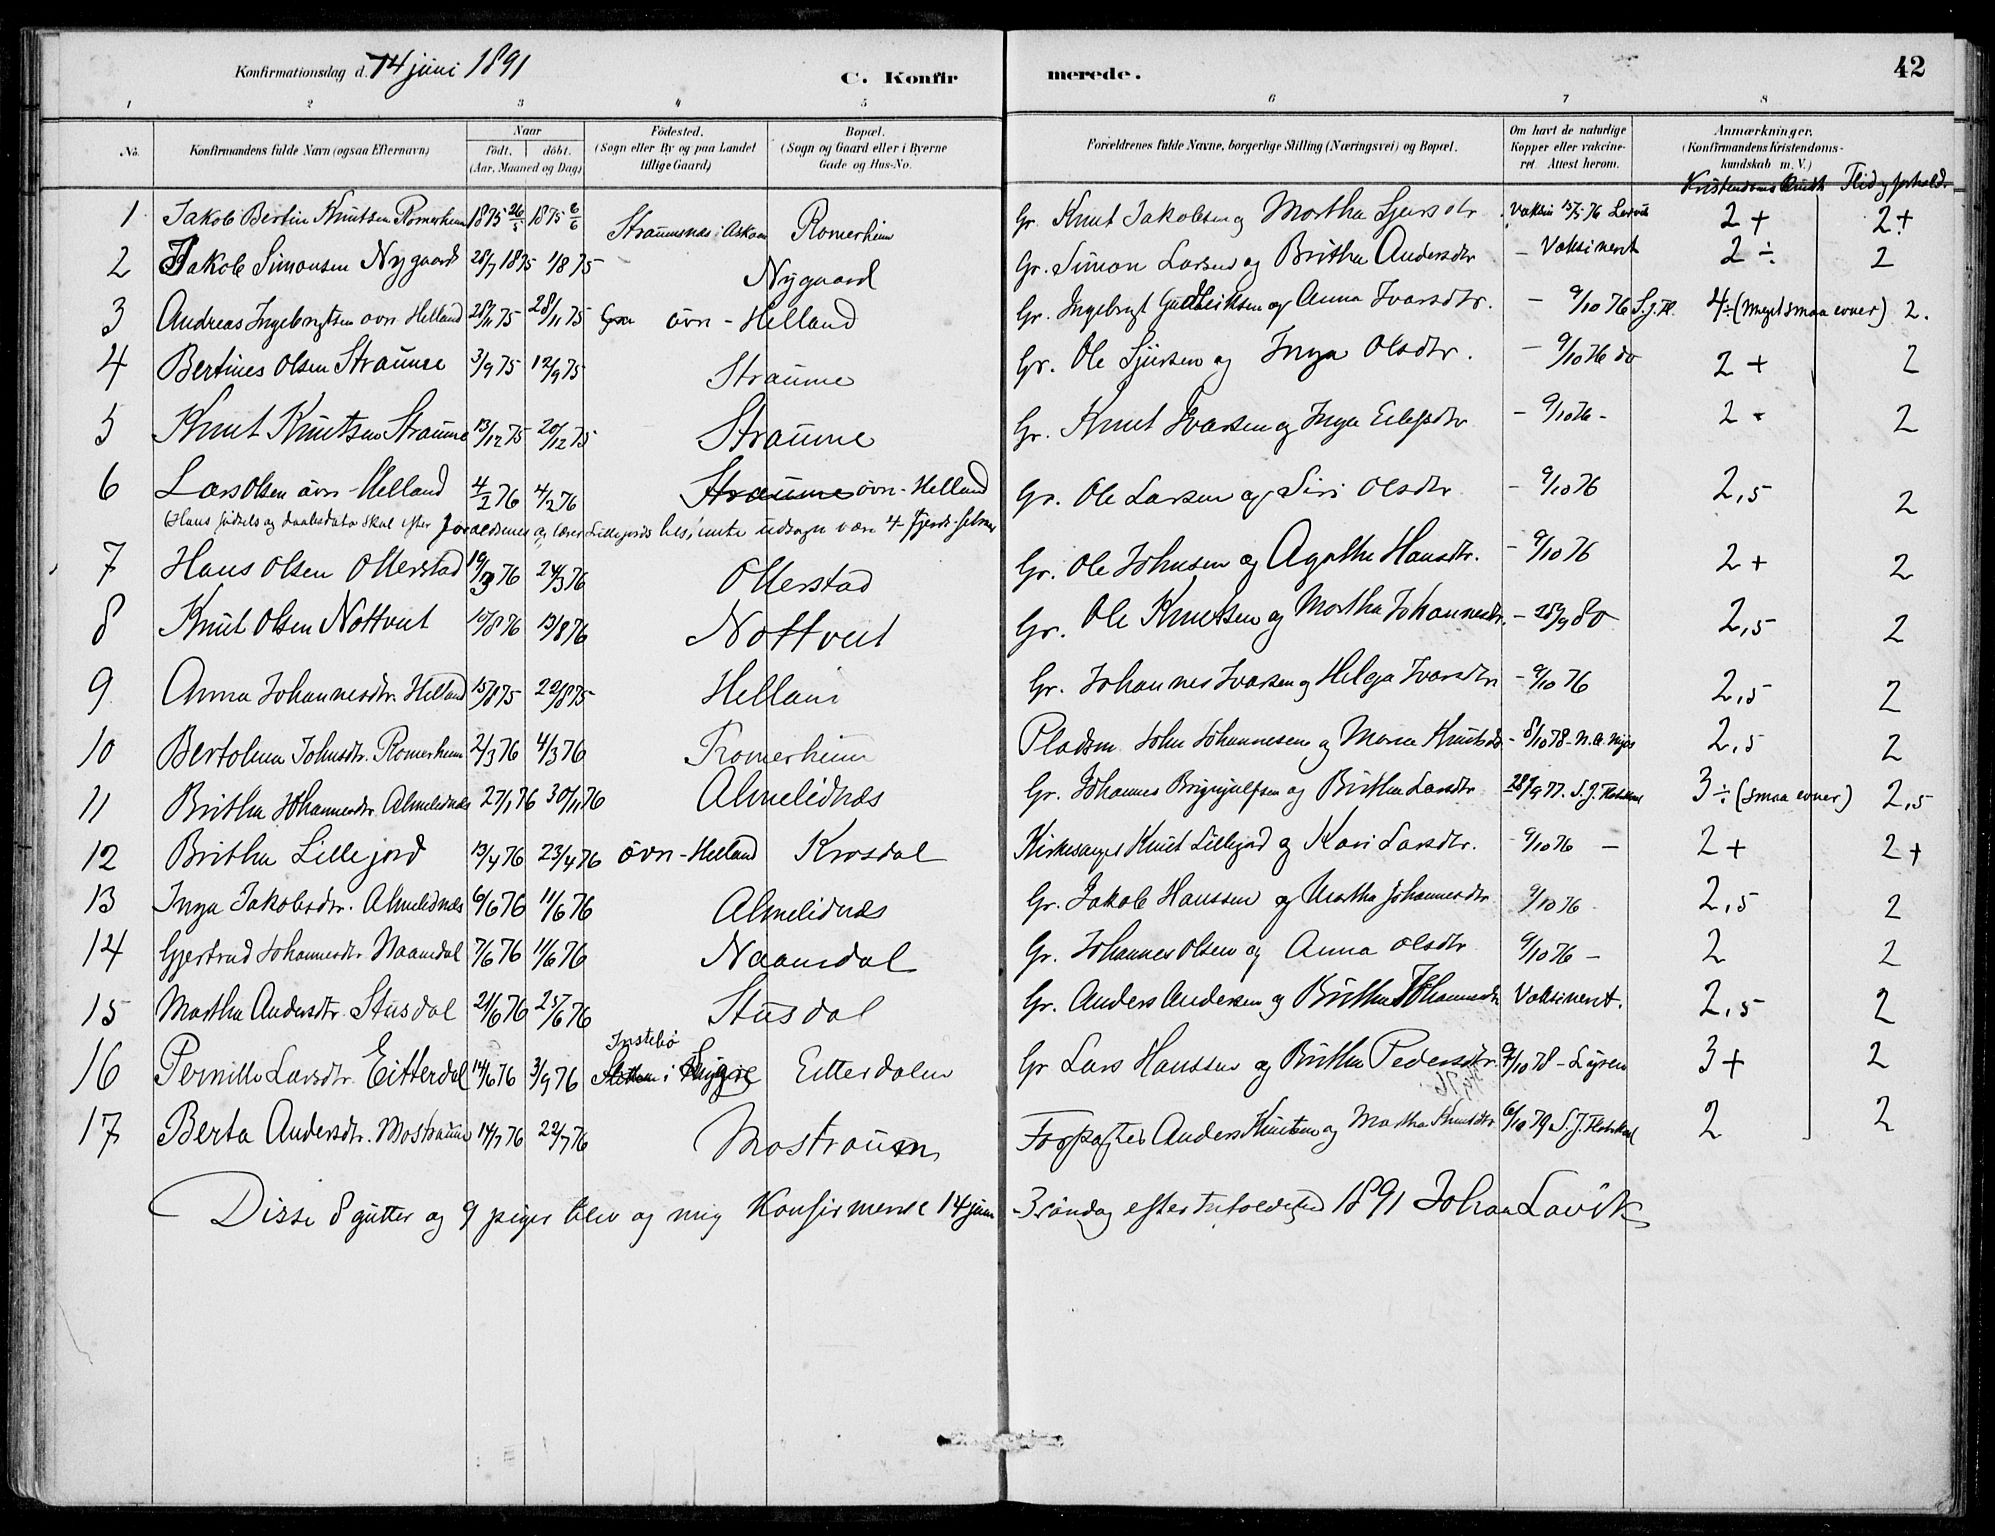 Konfirmationsdag d. 14 juni 1891 C. Konfirmerede. 42
1 2 3 4 5 6 7 8
No. Konfirmandens fulde Navn (ogsaa Efternavn) Naar født, døbt. (Aar, Maaned og Dag) Fødested. (Sogn eller By og paa Landet tillige Gaard) Bopæl. (Sogn og Gaard eller i Byerne Gade og Hus-No. Forældrenes fulde Navne, borgerlige Stilling (Næringsvei) og Bopæl. Om havt de naturlige Kopper eller vakcineret. Attest herom. Anmærkninger. (Konfirmandens Kristendomskundskab m. V.)
Kristendoms Flid og forhold
1 Jakob Bertin Knutsen Romerheim 1875 26/5 1875 6/6 Straumsnes i Askøen Romerheim Gr. Knut Jakobsen og Martha Sjursdtr Vaksin 15/5 76 2+ 2+
2 Jakob Simonsen Nygaard 28/7 1875 1/8 75 Nygaard Gr. Simon Larsen og Britha Andersdtr – Vaksineret 2÷ 2
3 Andreas Ingebrigtsen øvn Helland 28/11 75 28/11 75 øvn - Helland Gr. Ingebrigt Gulleiksen og Anna Ivarsdtr. – 9/10 76 S.J.H. 4÷ (meget smaa evner) 2.
4 Bertines Olsen Straume 3/9 75 12/9 75 Straume Gr. Ole Sjursen og Inga Olsdtr. – 9/10 76 do 2+ 2
5 Knut Knutsen Straume 13/12 75 20/12 75 Straume Gr. Knut Ivarsen og Inga Eilifsdtr – 9/10 76 – 2 2
6 Lars Olsen øvn - Helland 4/2 76 4/2 76 Straume øvn - Helland Gr. Ole Larsen og Siri Olsdtr – 9/10 76 2,5 2
(Hans fødsels og daabsdato skal efter forældrenes og lærer Lillejords udsagn være 4
7 Hans Olsen Otterstad 19/3 76 24/3 76 Otterstad Gr. Ole Johnsen og Agatha Hansdtr. – 9/10 76 2+ 2
8 Knut Olsen Nottveit 10/8 76 13/8 76 Nottveit Gr. Ole Knutsen og Martha Johannesdtr. – 25/9 80 2,5 2
9 Anna Johannesdtr. Helland 15/8 75 22/8 75 Helland Gr. Johannes Ivarsen og Helga Ivarsdtr – 9/10 76 2,5 2
10 Bertolina Johnsdtr. Romerheim 2/3 76 4/3 76 Romerheim Pladsm. John Johannesen og Maria Knutsdtr – 8/10 78 – 2,5 2
11 Britha Johannesdtr. Almelidnæs 27/1 76 30/1 76 Almelidnæs Gr. Johannes Brynjulfsen og Britha Larsdtr 28/9 77. S.J. 3÷ (smaa evner) 2,5
12 Britha Lillejord 13/4 76 23/4 76 øvn - Helland Krosdal Kirkesanger Knut Lillejord og Kari Larsdtr. – 9/10 76 – 2+ 2+
13 Inga Jakobsdtr. Almelidnæs 6/6 76 11/6 76 Almelidnæs Gr. Jakob Hanssen og Martha Johannesdtr 9/10 76 2,5 2
14 Gjertrud Johannesdtr Naamdal 7/6 76 11/6 76 Naamdal Gr. Johannes Olsen og Anna Olsdtr 9/10 76 – 2 2
15 Martha Andersdtr. Stusdal 21/6 76 25/6 76 Stusdal Gr. Anders Andersen og Britha Johannesdtr Vaksineret. 2,5 2
16 Pernille Larsdtr. Eitterdal 14/6 76 3/9 76 Instebø i Eitterdalen Gr Lars Hanssen og Britha Pedersdtr. 9/10 78 – 3+ 2
17 Berta Andersdtr. Mostraum 14/7 76 22/7 76 Mostraum Forpagter Anders Knutsen og Martha Knutsdtr 6/10 79 S.J. 2 2
Disse 8 gutter og 9 piger blev og mig Konfirmeret 14 juni – 3 søndag efter trefoldighed 1891 Johan Lavik